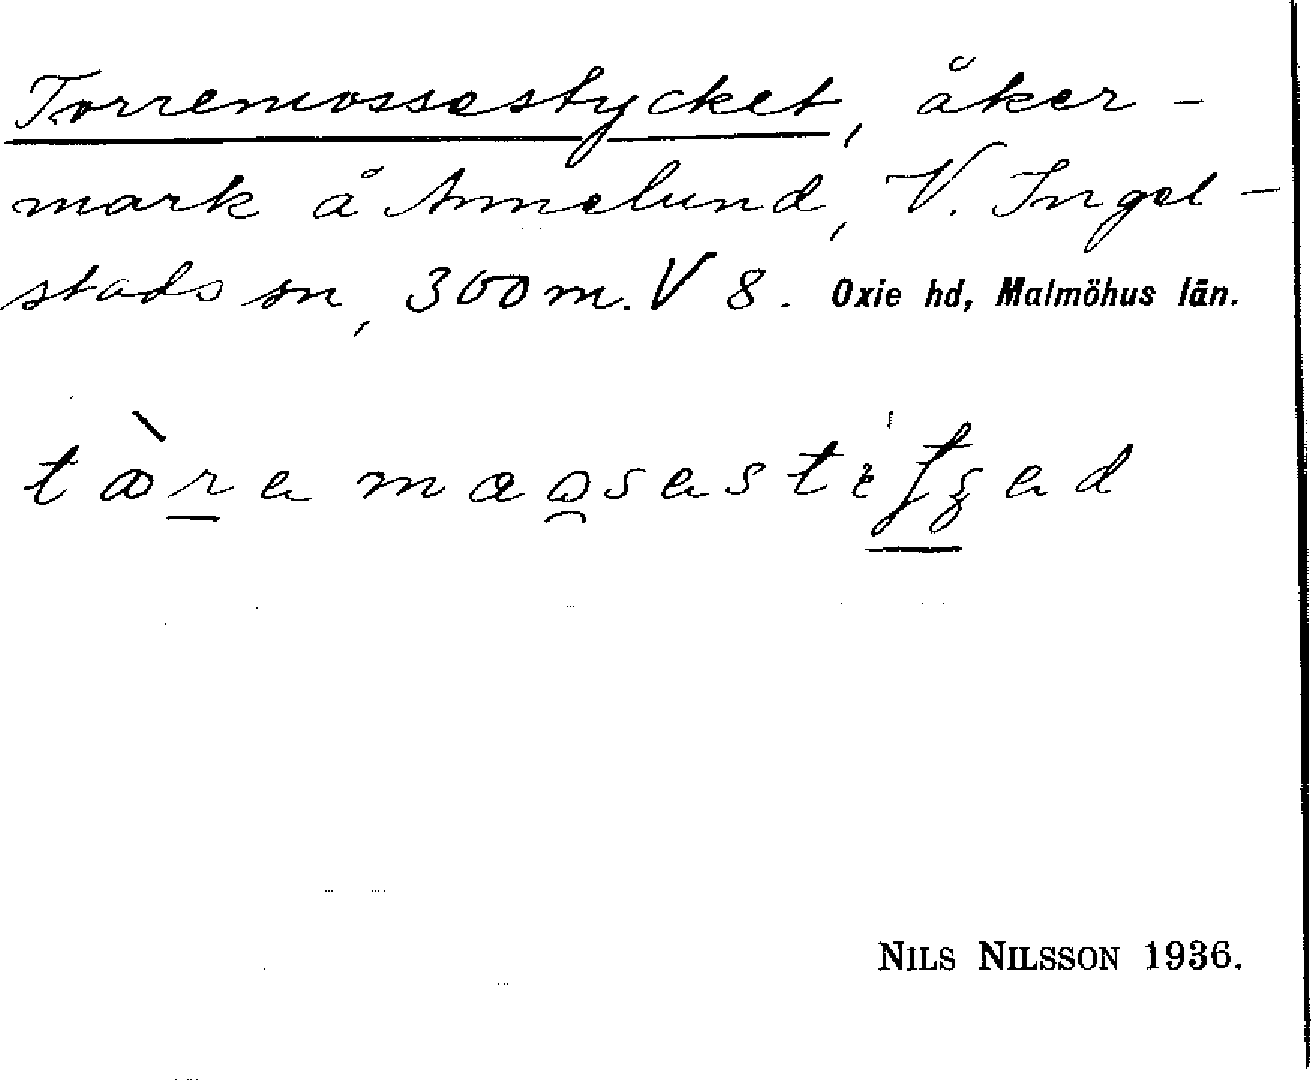 Torremossestycket, åker-
mark å Annelund, V. Ingel-
stads sn, 300 m. V 8. Oxie hd, Malmöhus län.
NILS NILSSON 1936.